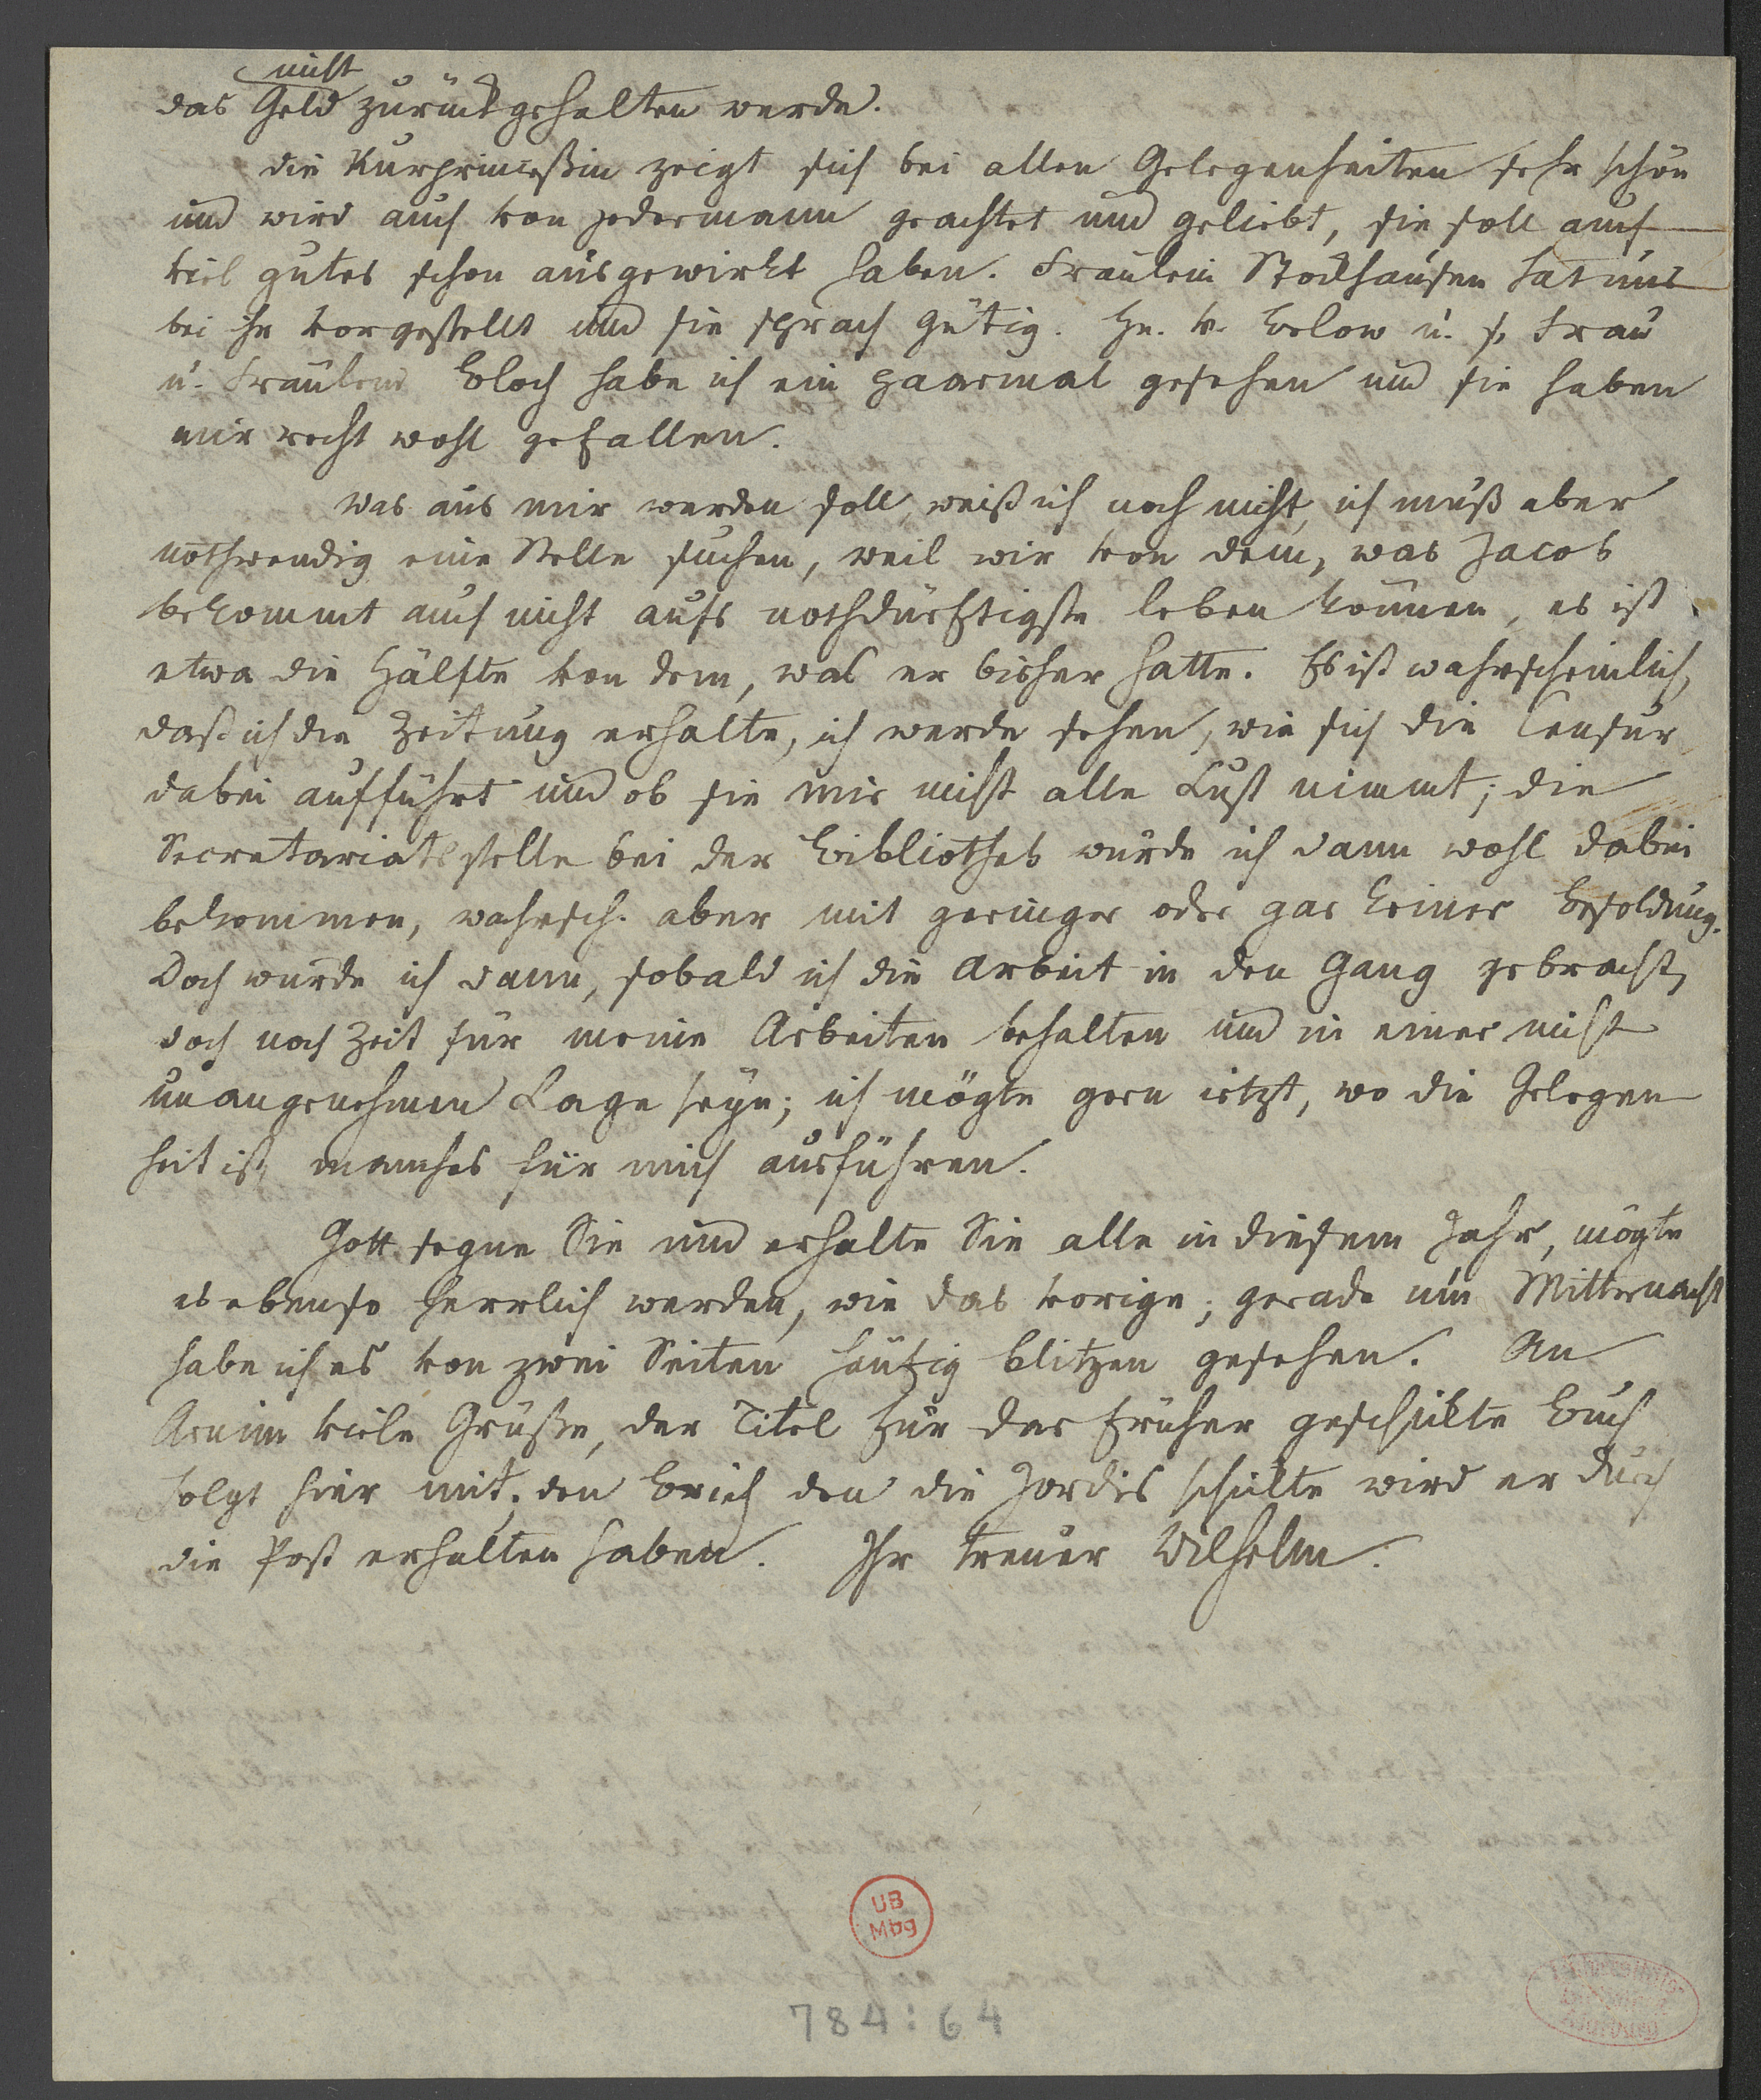 nicht
das Geld zurückgehalten werde.
die Kurprinceßin zeigt sich bei allen Gelegenheiten sehr schön
und wird auch von jedermann geachtet und geliebt, sie soll auch
viel gutes schon ausgewirkt haben. Fräulein Stockhausen hat uns
bei ihr vorgestellt und sie sprach gütig. Hn. v. Below u. s. Frau
u. Fräulein Bloch habe ich ein paarmal gesehen und sie haben
mir recht wohl gefallen.
Was aus mir werden soll, weiß ich noch nicht, ich muß aber
nothwendig eine Stelle suchen, weil wir von dem, was Jacob
bekommt auch nicht aufs nothdürftigste leben können, es ist
etwa die Hälfte von dem, was er bisher hatte. Es ist wahrscheinlich,
daß ich die Zeitung erhalte, ich werde sehen, wie sich die Censur
dabei aufführt und ob sie mir nicht alle Lust nimmt; die
Secretariatsstelle bei der Bibliothek würde ich dann wohl dabei
bekommen, wahrsch. aber mit geringer oder gar keiner Besoldung.
Doch würde ich dann, sobald ich die Arbeit in den Gang gebracht,
doch noch Zeit für meine Arbeiten behalten und in einer nicht
unangenehmen Lage seyn; ich mögte gern jetzt, wo die Gelegen
heit ist, manches für mich ausführen.
Gott segne Sie und erhalte Sie alle in diesem Jahr, mögte
es ebenso herrlich werden, wie das vorige; gerade um Mitternacht
habe ich es von zwei Seiten häufig blitzen gesehen. An
Arnim viele Grüße, der Titel für das früher geschickte Buch
folgt hier mit; den Brief den die Jordis schickte wird er durch
die Post erhalten haben. Ihr treuer Wilhelm.
UB
Mbg
784:64